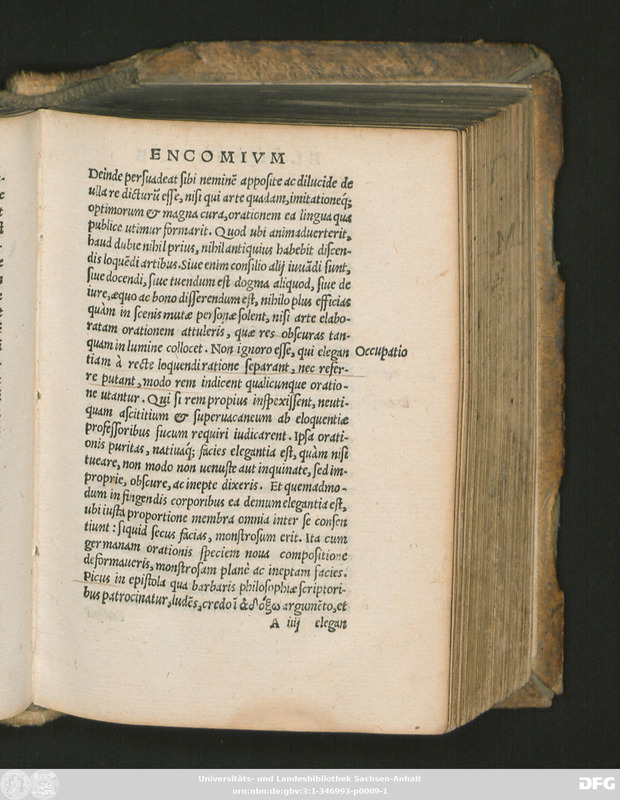 ENCOMIVM
Deinde persuadeat sibi neminẽ apposite ac dilucide de
ulla re dicturũ esse, nisi qui arte quadam, imitationeq́;
optimorum & magna cura, orationem ea lingua qua
publice utimur formarit. Quod ubi animaduerterit,
haud dubie nihil prius, nihil antiquius habebit discen-
dis loquẽdi artibus. Siue enim consilio alij iuuãdi sunt,
siue docendi, siue tuendum est dogma aliquod, siue de
iure, æquo ac bono disserendum est, nihilo plus efficias
quàm in scenis mutæ personæ solent, nisi arte elabo-
ratam orationem attuleris, quæ res obscuras tan-
quam in lumine collocet. Non ignoro esse, qui elegan
Occupatio
tiam à recte loquendi ratione separant, nec refer-
re putant, modo rem indicent qualicunque oratio-
ne utantur. Qui si rem propius inspexissent, neuti-
quam ascititium & superuacaneum ab eloquentiæ
professoribus fucum requiri iudicarent. Ipsa orati-
onis puritas, natiuaq́; facies elegantia est, quàm nisi
tueare, non modo non uenuste aut inquinate, sed im-
proprie, obscure, ac inepte dixeris. Et quemadmo-
dum in fingendis corporibus ea demum elegantia est,
ubi iusta proportione membra omnia inter se consen
tiunt: siquid secus facias, monstrosum erit. Ita cum
germanam orationis speciem noua compositione
deformaueris, monstrosam planè ac ineptam facies.
Picus in epistola qua barbaris philosophiæ scriptori-
bus patrocinatur, ludẽs, credo ĩ ἀδόξῳ argumẽto, et
A iiij elegan
Universitäts- und Landesbibliothek Sachsen-Anhalt
urn:nbn:de:gbv:3:1-346993-p0009-1
DFG